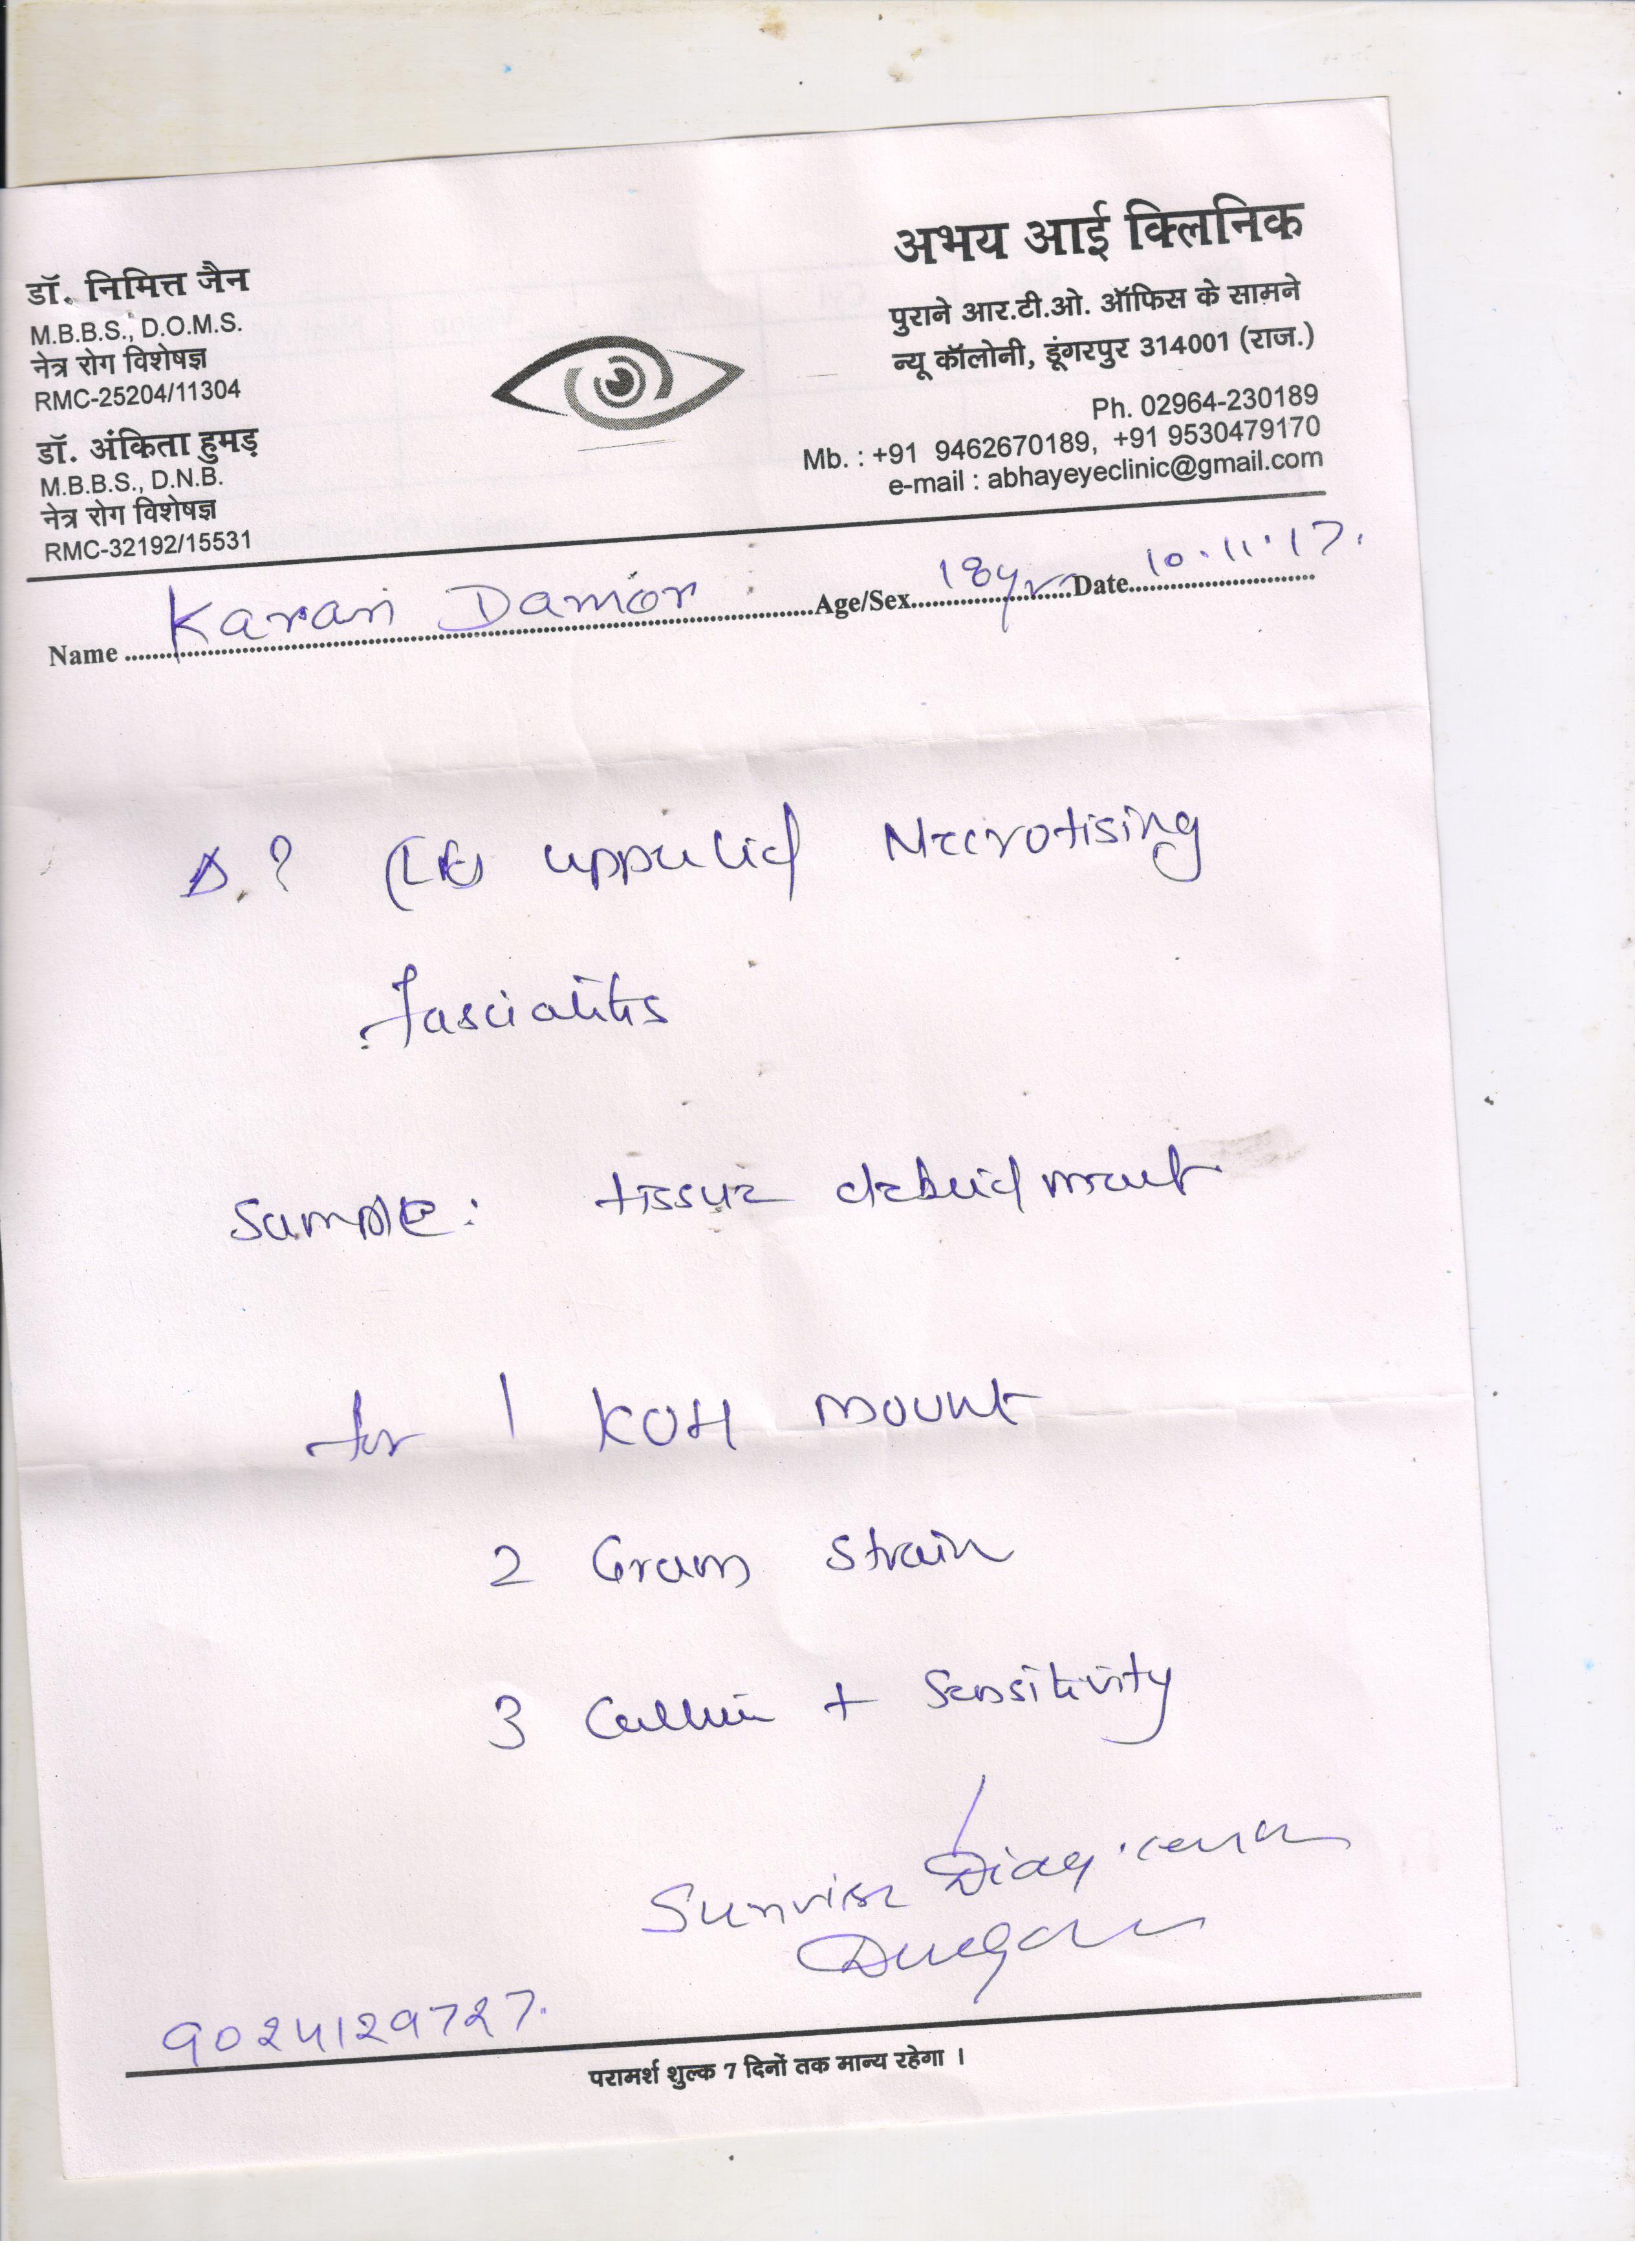 डॉ. निमित्त जैन
M.B.B.S., D.O.M.S.
नेत्र रोग विशेषज्ञ
RMC-25204/11304
डॉ. अंकिता हुमड़
M.B.B.S., D.N.B.
नेत्र रोग विशेषज्ञ
RMC-32192/15531
अभय आई क्लिनिक
पुराने आर.टी.ओ. ऑफिस के सामने
न्यू कॉलोनी, डूंगरपुर 314001 (राज.)
Ph. 02964-230189
Mb. : +91 9462670189, +91 9530479170
e-mail : abhayeyeclinic@gmail.com
Name Karan Damor Age/Sex 18yr Date 10.11.17.
Δ.? (LE) upper lid Necrotising
fascialitis
Sample: tissue debridment
for 1 KOH mount
2 Gram strain
3 Culture + Sensitivity
Sunrise Diag.
9024129727.
परामर्श शुल्क 7 दिनों तक मान्य रहेगा ।